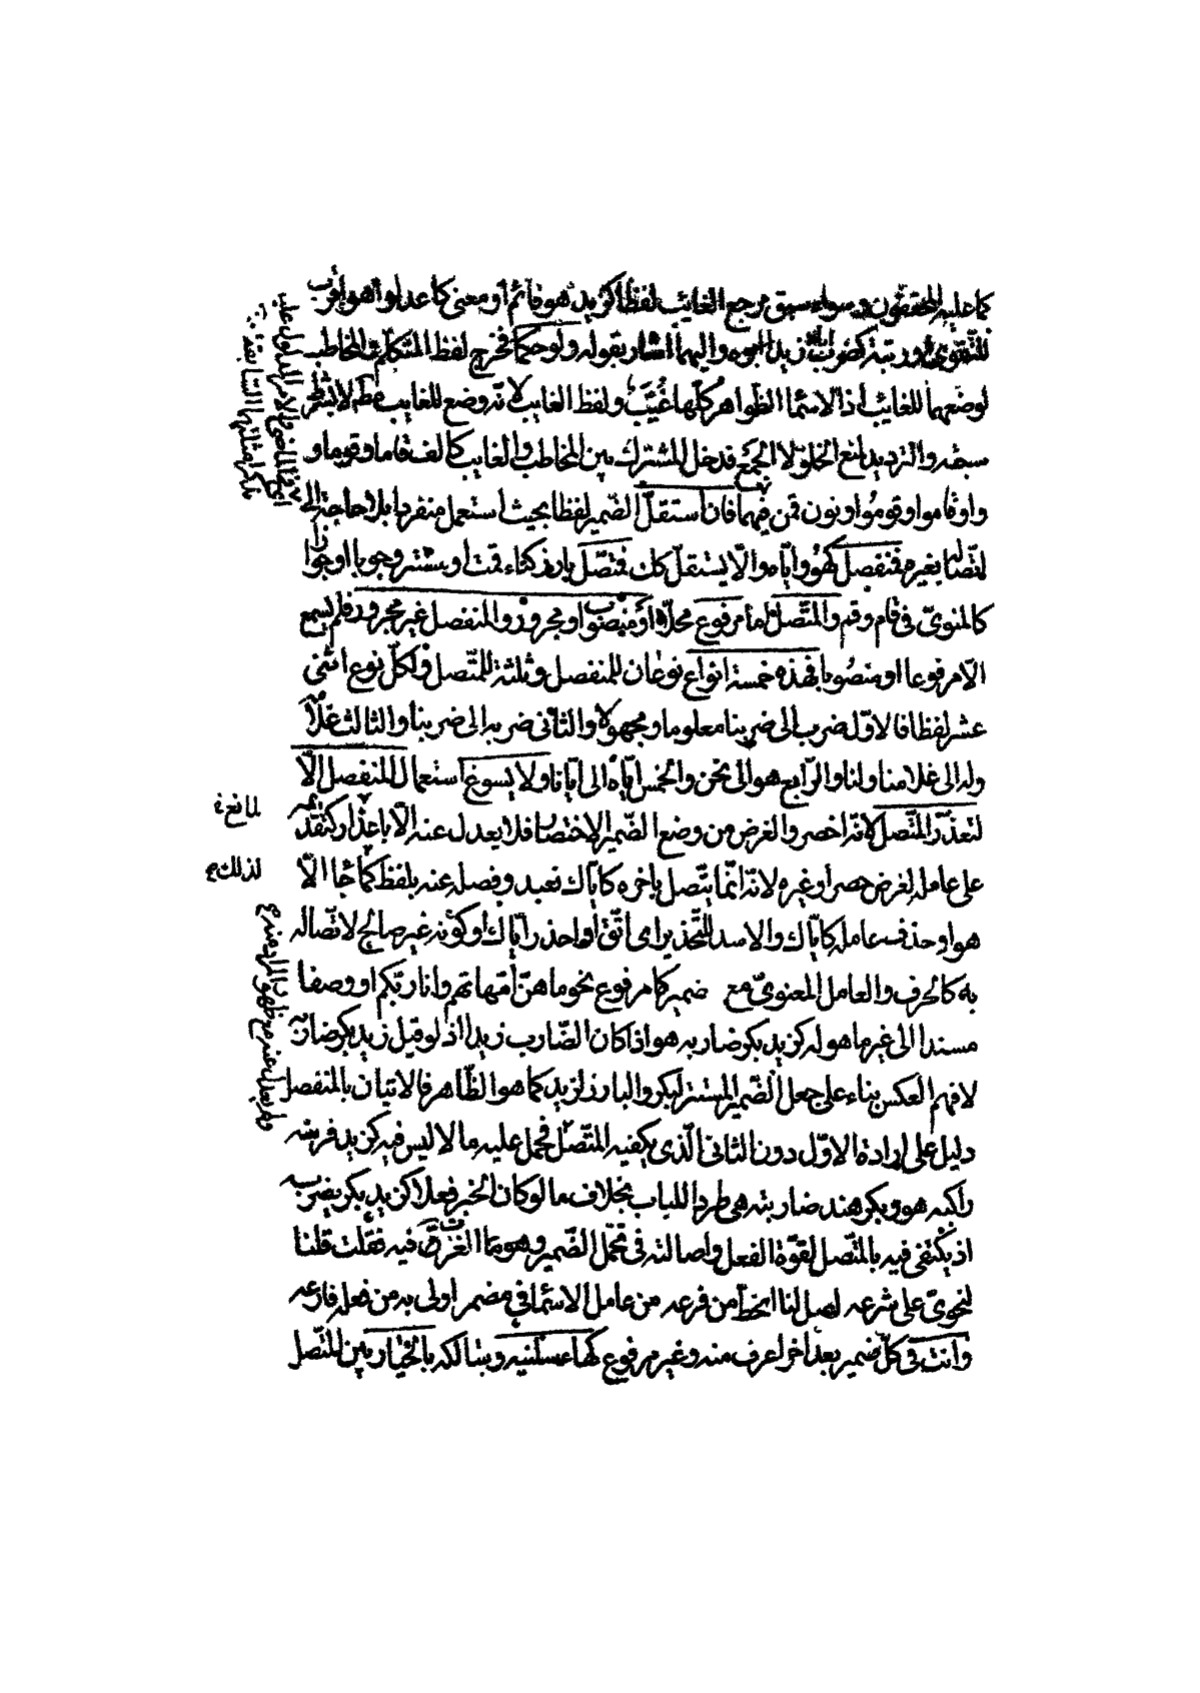 كما عليه المحققون وسواء سبق مرجع الغائب لفظا كزيد هو قائم أو معنى كاعدلوا هو أقرب
للتقوى أو رتبة كضرب زيد واليهما اشار بقوله ولو حكما فخرج لفظ المتكلم والمخاطب
لوضعهما للغائب اذ الاسماء الظواهر كلها غُيَّب ولفظ الغايب لانه وضع للغايب لا بشرط
سبقه والترديد لمنع الخلو لا الجمع فدخل المشترك بين المخاطب والغايب كالف قاما وقوما و
واو قاموا وقوموا ونون قمن فيهما فان استقل الضمير لفظا بحيث استعمل منفردا بلا حاجة الى
اتصاله بغيره فمنفصل كهو واياه والا يستقل كك فمتصل بارز كتاء قمت او مستتر وجوبا او جوازا
كالمنوي في قام وقم والمتصل اما مرفوع محلا او منصوب او مجرور والمنفصل غير مجرور فلم يسمع
الا مرفوعا او منصوبا فهذه خمسة انواع نوعان للمنفصل وثلثة للمتصل ولكل نوع اثني
عشر لفظا فالاول ضرب الى ضربنا معلوما ومجهولا والثاني ضربه الى ضربنا والثالث غلامه
وله الى غلامنا ولنا والرابع هو الى نحن والخمس اياه الى ايانا ولا يسوغ استعمال المنفصل الا
لتعذر المتصل لانه اخصر والغرض من وضع الضمير الاختصار فلا يعدل عنه الا باعذار كتقدمه
على عامله لغرض حصر أو غيره لانه انما يتصل باخره كاياك نعبد وفصله عنه بلفظ كما جاء الا
هو او حذف عامله كاياك والاسد للتحذير اى اتق او احذر اياك او كونه غير صالح لاتصاله
به كالحرف والعامل المعنوي مع ضمير كامرفوع نحو ما هن امهاتهم وانا ربكم او وصفا
مسندا الى غير ما هو له كزيد بكر ضاربه هو اذا كان الضارب زيدا اذ لو قيل زيد بكر ضاربه
لافهم العكس بناء على جعل الضمير المستتر لبكر والبارز لزيد كما هو الظاهر فالاتيان بالمنفصل
دليل على ارادة الاول دون الثاني الذى يكفيه المتصل فحمل عليه ما لا لبس فيه كزيد فرسه
راكبه هو وبكر هند ضاربته هى طردا للباب بخلاف ما لو كان الخبر فعلا كزيد بكر يضربه
اذ يكتفى فيه بالمتصل لقوة الفعل واصالته في تحمل الضمير وهو مما الغزت فيه فقلت قلنا
لنحوى على شرعه اصل لنا انحط من فرعه من عامل الاسماء في مضمر اولى به من فعله فارعه
وانت في كل ضمير بعد اخر اعرف منه وغير مرفوع كهاء سلنيه وبتا لكه بالخيار بين المتصل
لمانع
لذلك